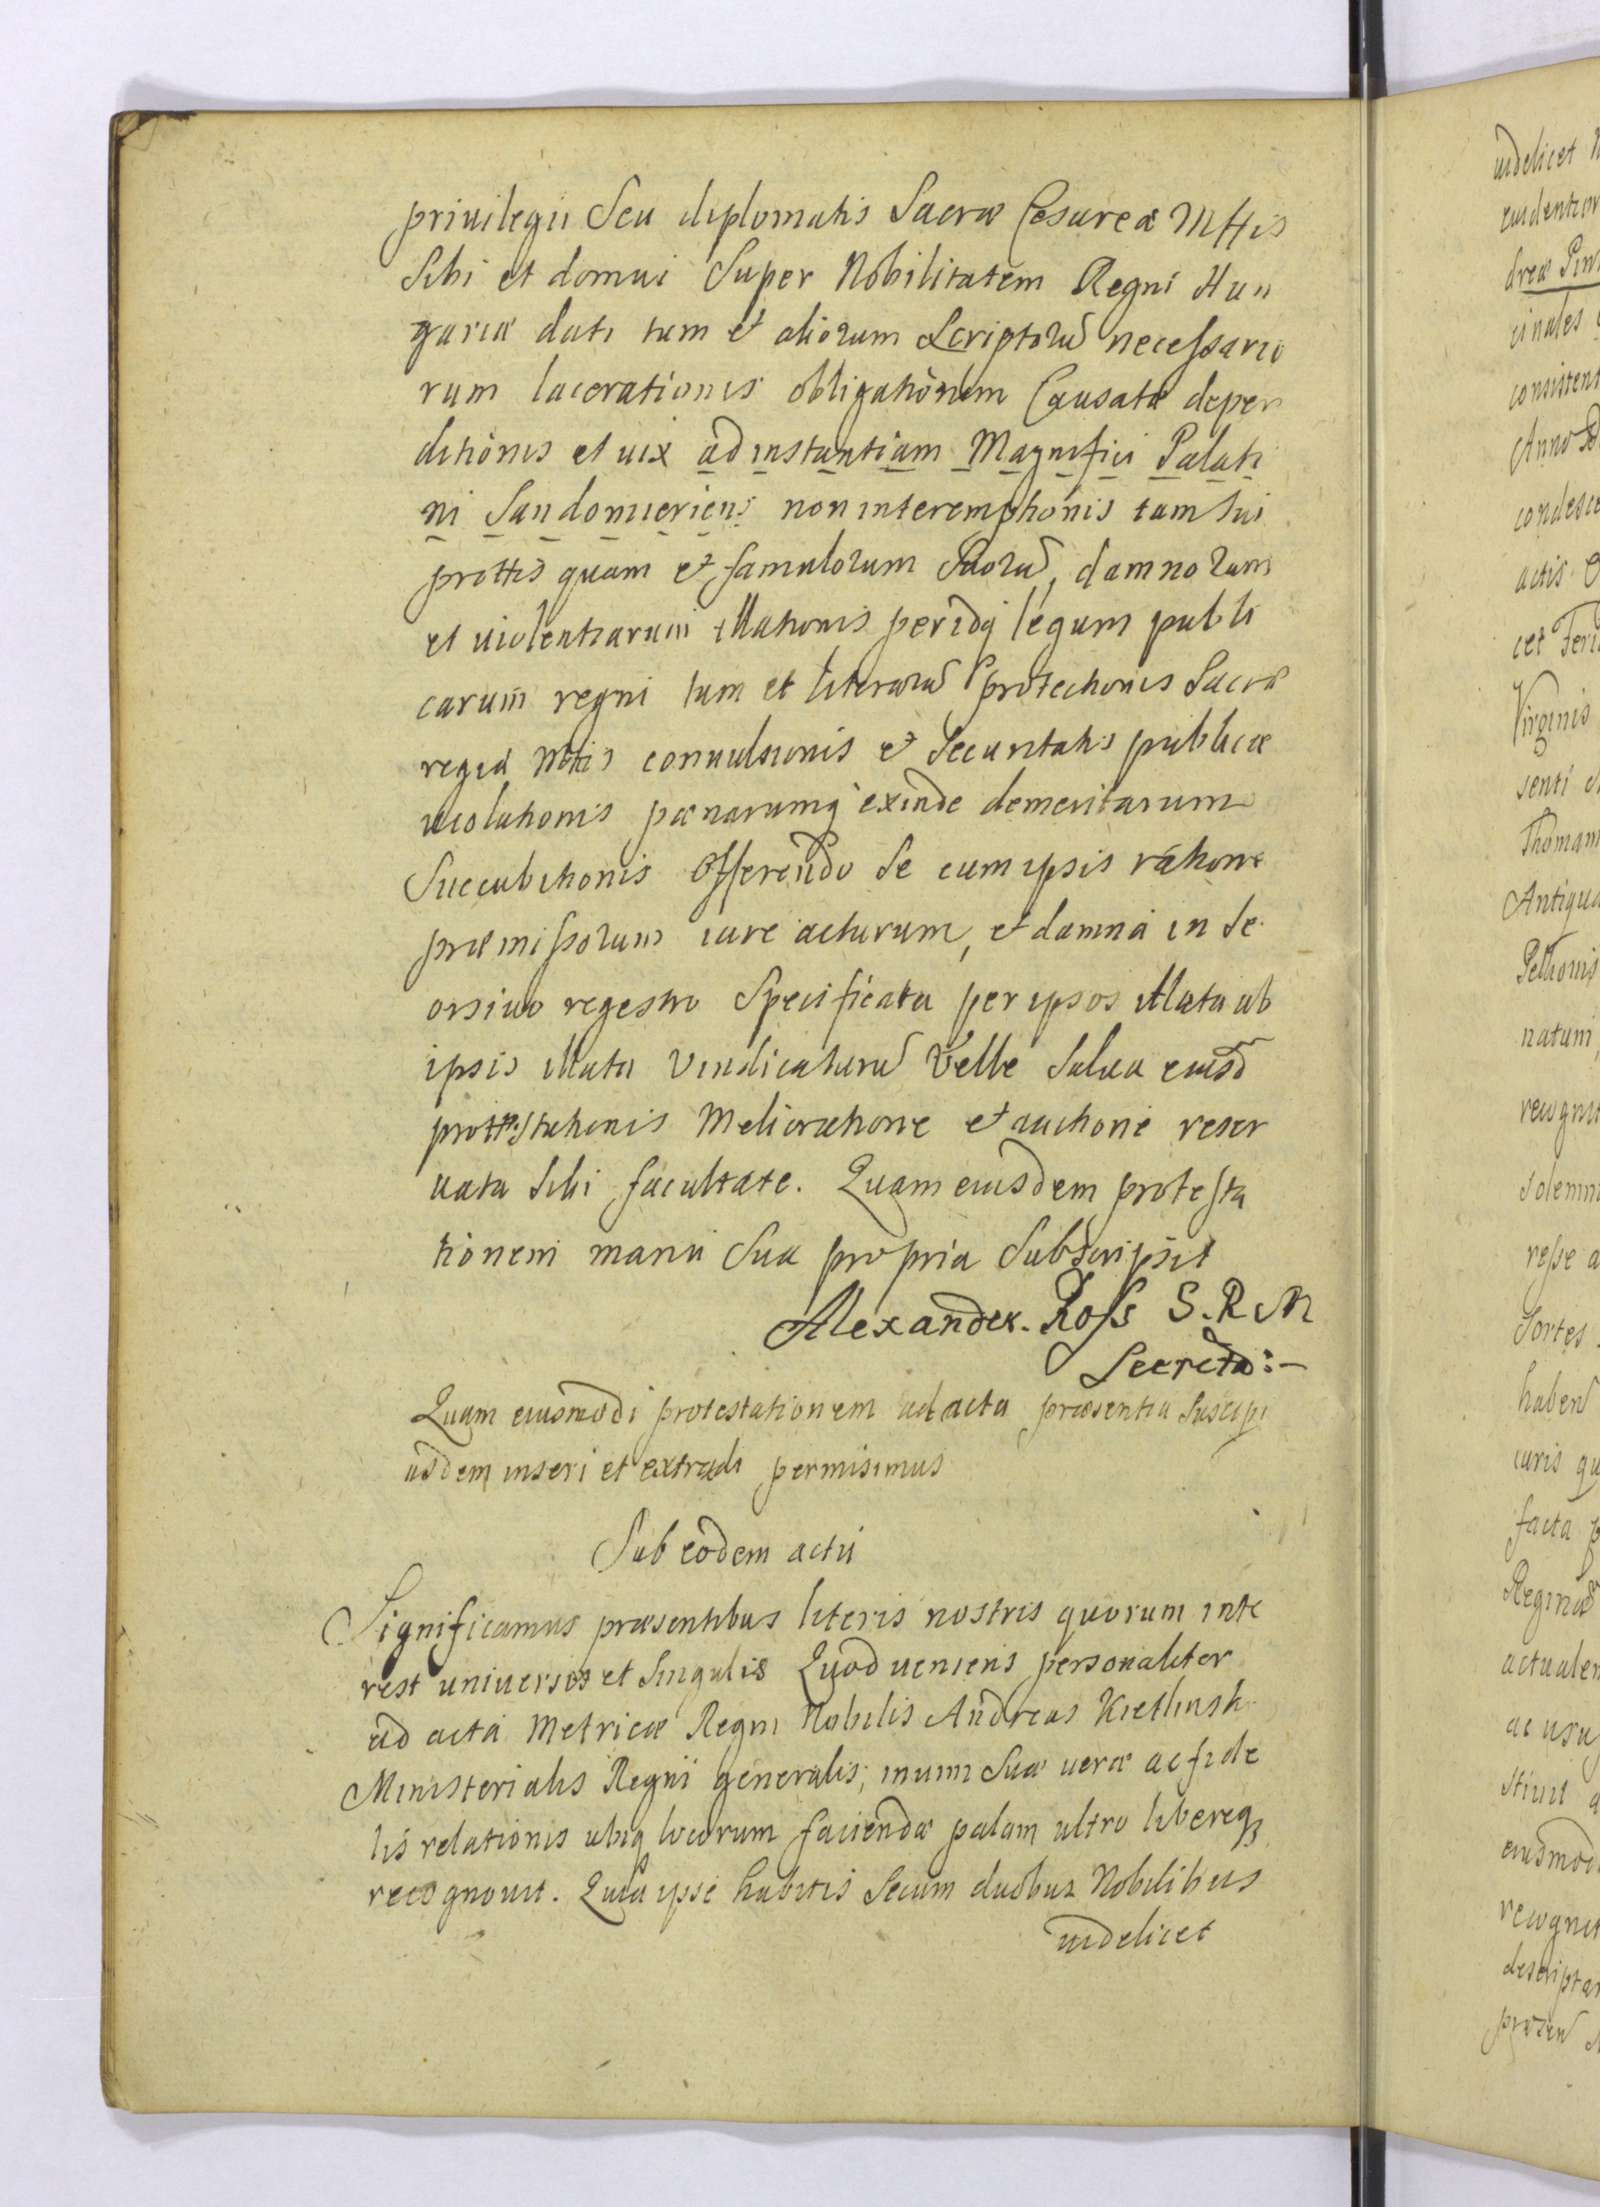 priuilegii Seu diplomatis Sacræ Cesareæ Mttis
Sibi et domui Super Nobilitatem Regni Hun
gariæ dati tum et aliorum Scriptorũ necessario
rum lacerationis obligationum Causatæ deper
ditionis et uix ad instantiam Magnifici Palati
ni Sandomieriens non interemptionis tam Sui
prottis quam et famulorum Suorũ, damnorum
et uiolentiarum illationis peridq legum publi
carum regni tum et literarũ protectionis Sacræ
regiæ Mttis conuulsionis et Securitatis publicæ
uiolationis pænarumq exinde demeritarum
Succubitionis Offerendo Se cum ipsis ratione
præmissorum iure acturum, et damna in Se
orsiuo regestro Specificata per ipsos illata ab
ipsis illata Vindicaturũ Velle Salua eiusd
prottestationis Melioratione et auctione reser
uata Sibi facultate. Quam eiusdem protesta
tionem manu Sua propria Subscripsit
Alexander Ross S.R.M
Secreta:-
Quam eiusmodi protestationem ad acta præsentia Suscipi
iisdem inseri et extradi permisimus
Sub eodem actu
Significamus præsentibus literis nostris quorum inte
rest uniuersis et Singulis Quod ueniens personaliter
ad acta Metricæ Regni Nobilis Andreas Kietlinsk
Ministerialis Regni generalis, in uim Suæ ueræ ac fide
lis relationis ubiq locorum faciendæ palam ultro libereqз
recognouit. Quia ipse habitis Secum duobus Nobilibus
uidelicet
uidelicet
cinales
Anno
actis
Virginis
senti
Thomam
Pethonis
natum
solemni
resse a
Sortes
iuris qu
facta p
ac usu
eiusmodi